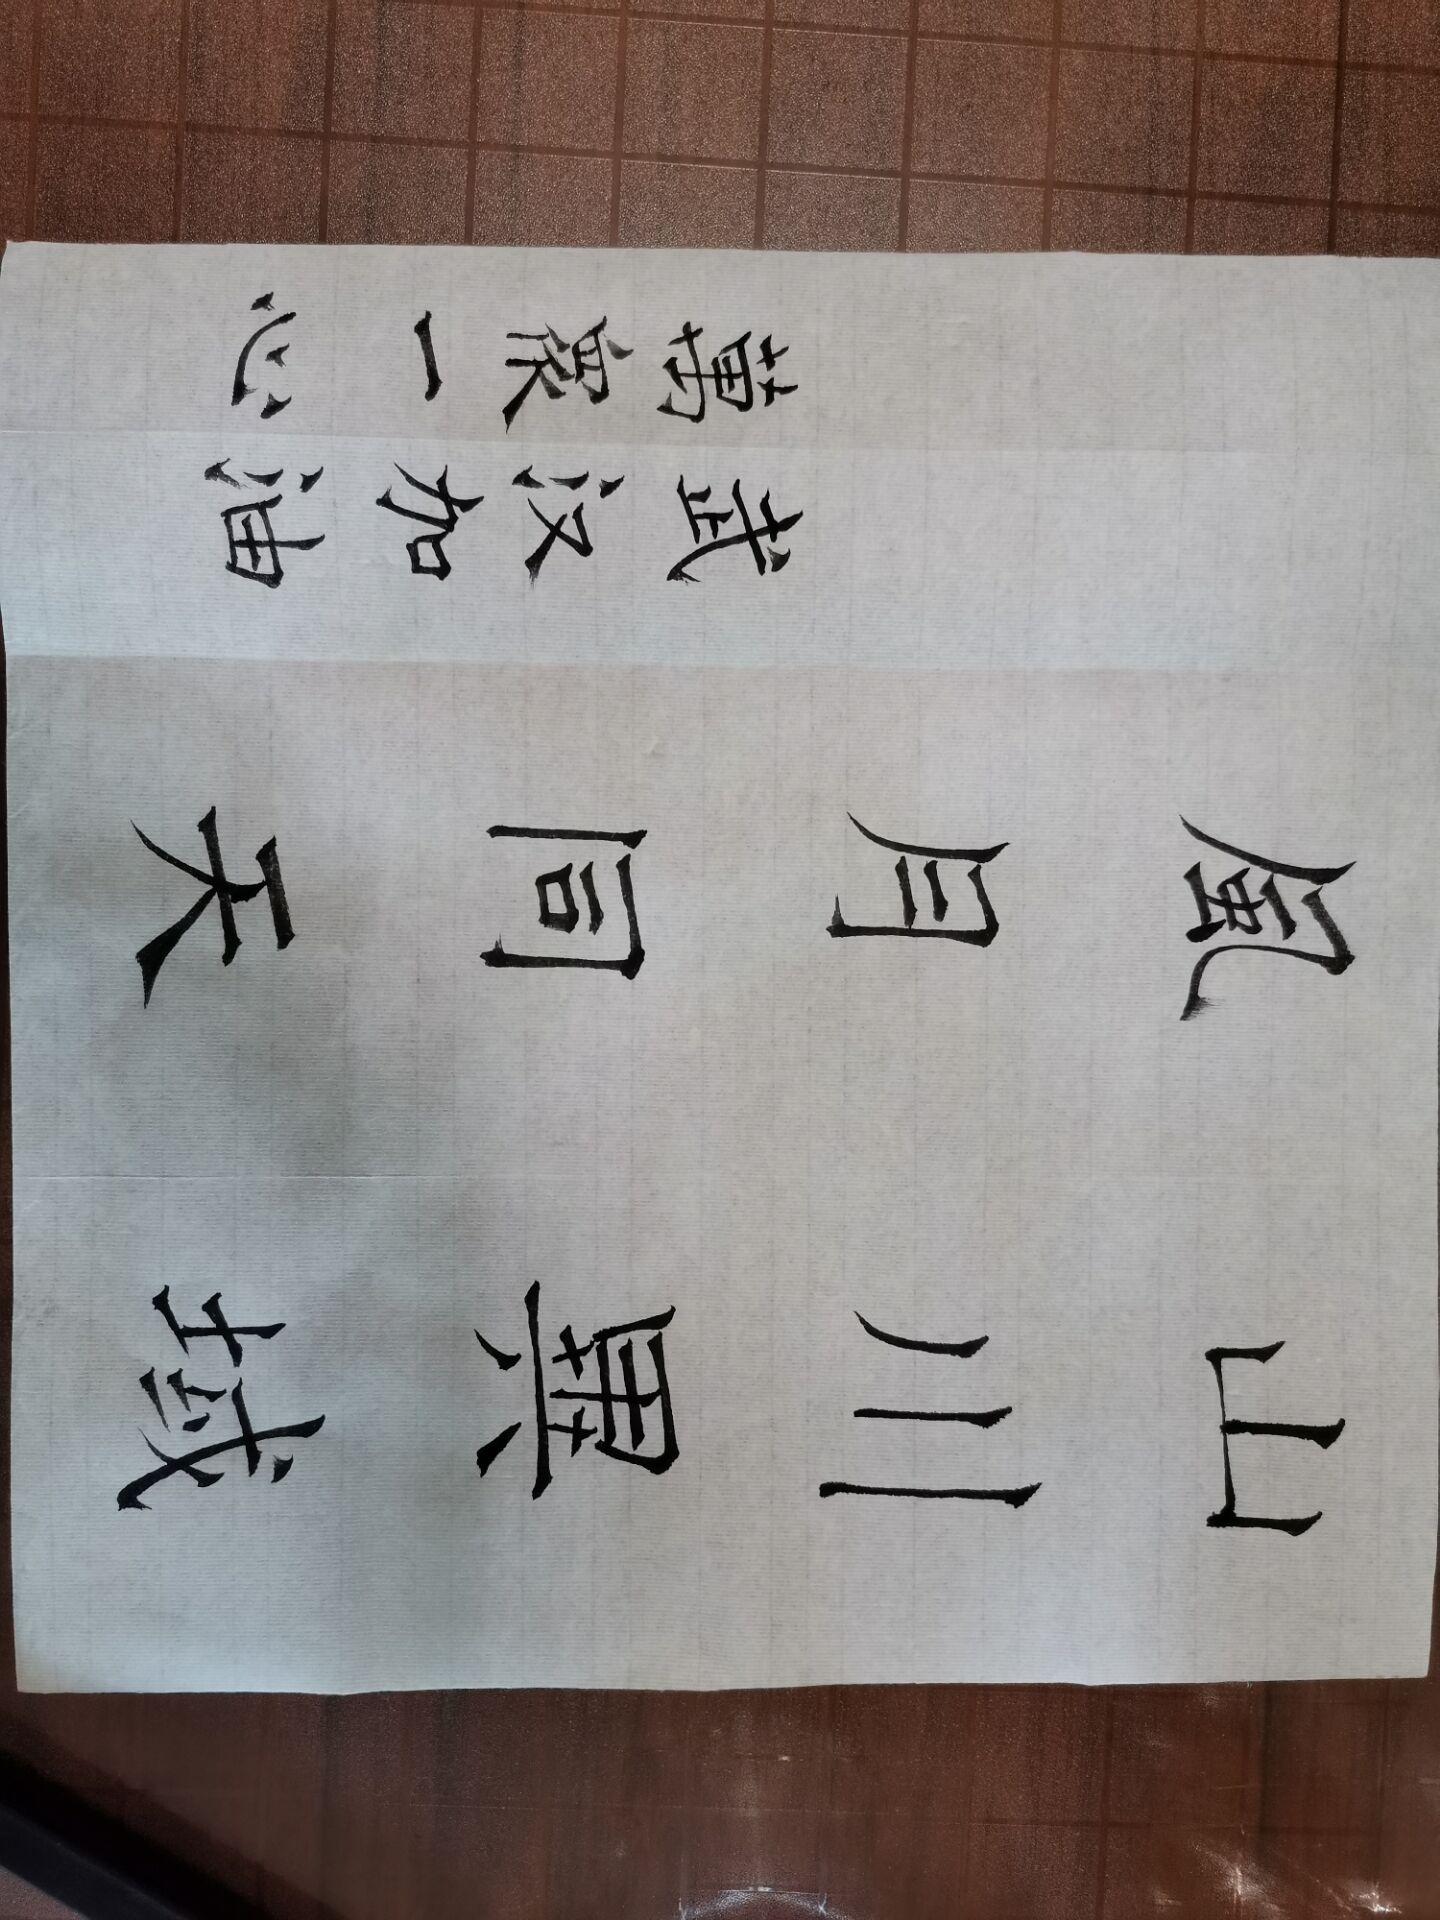 山川異域
風月同天
武汉加油
萬衆一心